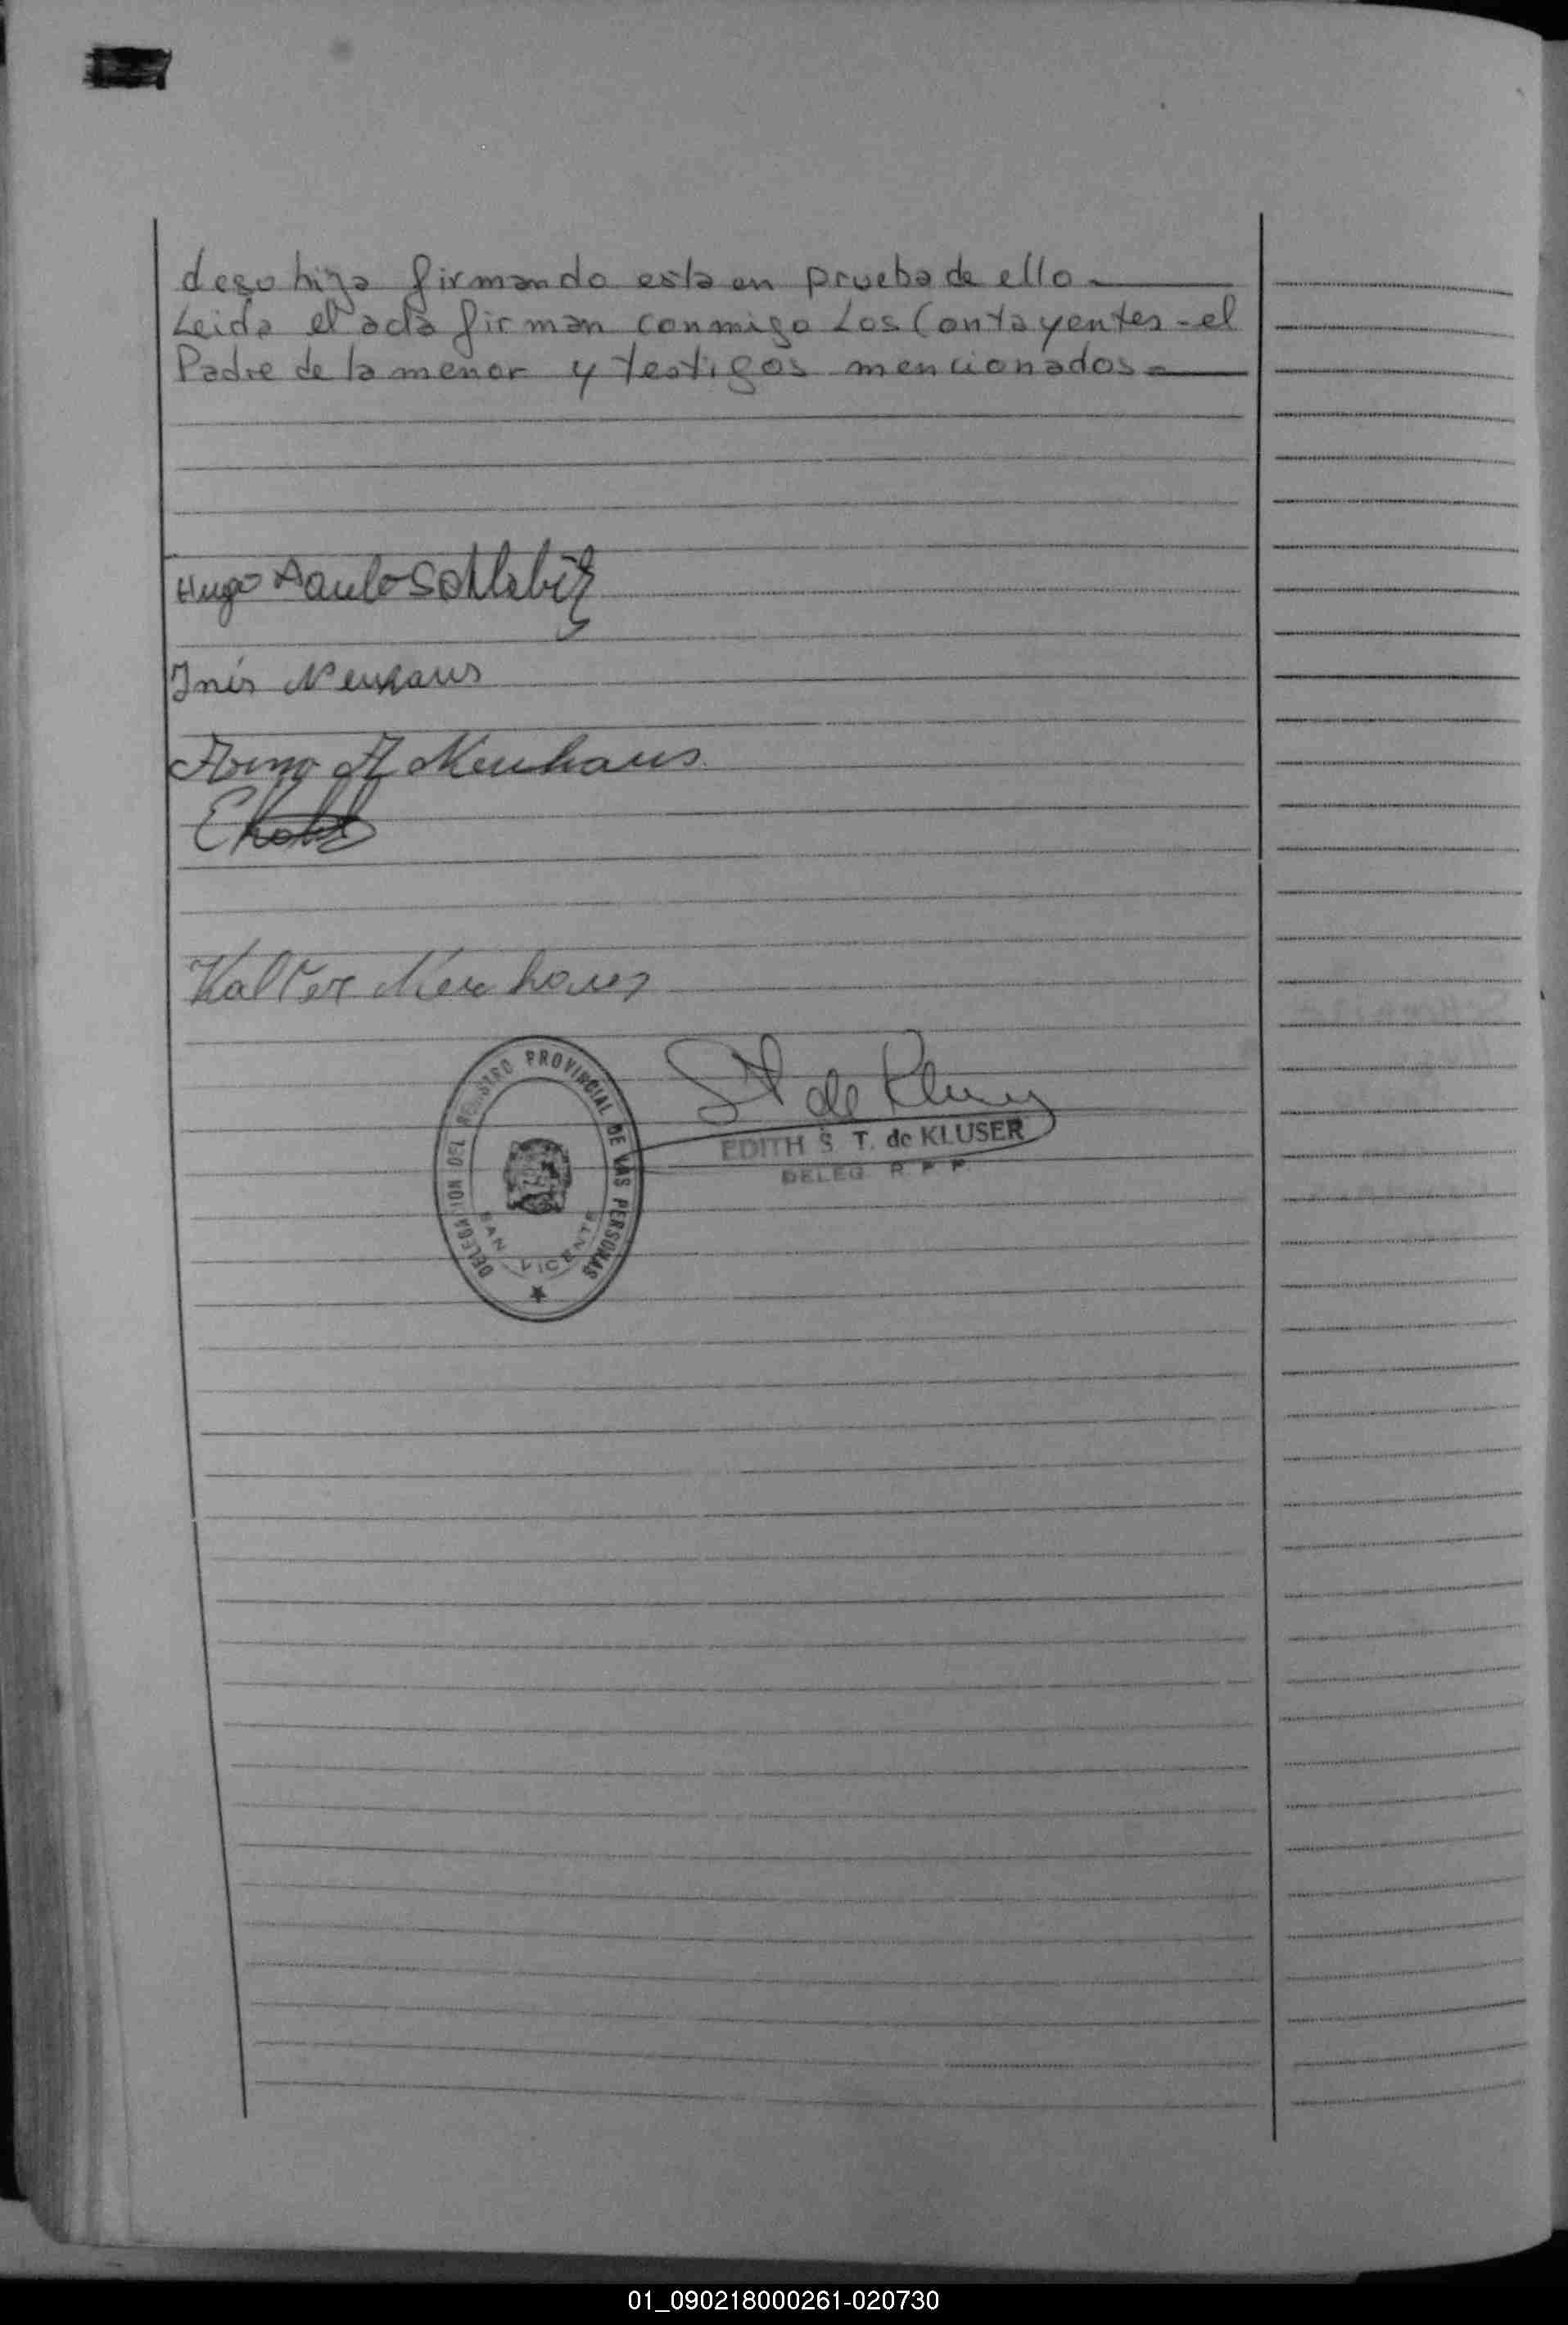 de su hija firmando esta en prueba de ello -
Leida el acta firman conmigo Los Contayentes - el
Padre de la menor y testigos mencionados -
Hugo Paulo
Inés Neuhaus
A Neuhaus
Neuhaus
DELEGACION DEL REGISTRO PROVINCIAL DE LAS PERSONAS
SAN VICENTE
EDITH S. T. de KLUSER
DELEG. R P P
01_090218000261-020730